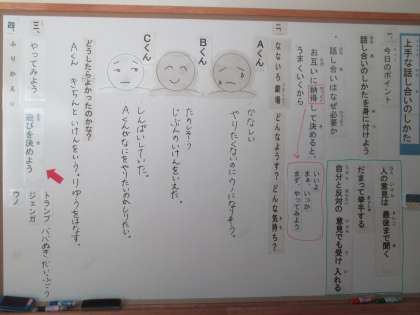 上手な話し合いのしかた
一、今日のポイント
話し合いのしかたを身に付けよう
・話し合いはなぜ必要か
お互いに納得して決めると、
うまくいくから
人の意見は最後まで聞く
だまって挙手する
自分と反対の意見でも受け入れる
いいよ
まぁ、いっか
まぁ、やってみよう
二、なないろ劇場 どんなようす？どんな気持ち？
Aくん
かなしい
やりたくないのに
Bくん
たのしそう
じぶんのいけんをいえた。
Cくん
しんぱいしていた。
Aくんがなにをやりたいかしりたい。
どうしたらよかったのかな？
Aくん きちんといけんをいう。りゆうをはなす。
三、やってみよう
遊びを決めよう
トランプ ババぬき だいふごう
ジェンガ
ウノ
四、ふりかえり